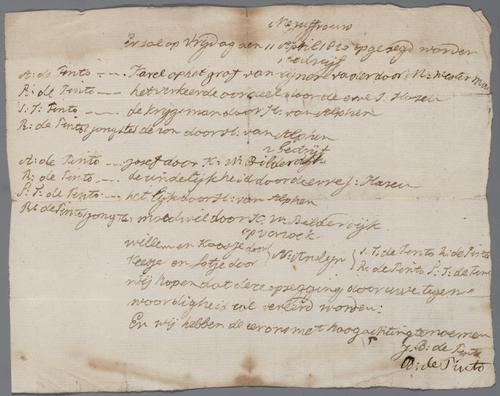 Mejuffrouw
Er sal op Vrijdag den 11 April 1820 opgezegd worden
1 bedrijf
A: de Pinto --- Karel op het graf van zijnen vader door N: Westerman
R: de Pinto --- het verkeerde oordeel door de erve J: Hazeu
I: I: Pinto --- de krijgsman door H: van Alphen
R: de Pinto jongste de ton door H: van Alphen
2 bedrijf
A: de Pinto --- Josef door K: W: Bilderdijk
R: de Pinto --- de eindelijkheid door de erve J: Hazeu
I: I: de Pinto --- het lijk door H: van Alphen
R: de Pinto jongste, moedwil door K: W: Bilderdijk
op versoek
willem en Kootje door
Keesje en Sotje door N: Anslijn I: I: de Pinto R: de Pinto
R: de Pinto I: I: de Pinto
wij hopen dat deze opzegging door uwe tegen-
woordigheid sal vereerd worden:
En wij hebben de eer ons met hoogachting te noemen
J: B: de Pinto
A: de Pinto